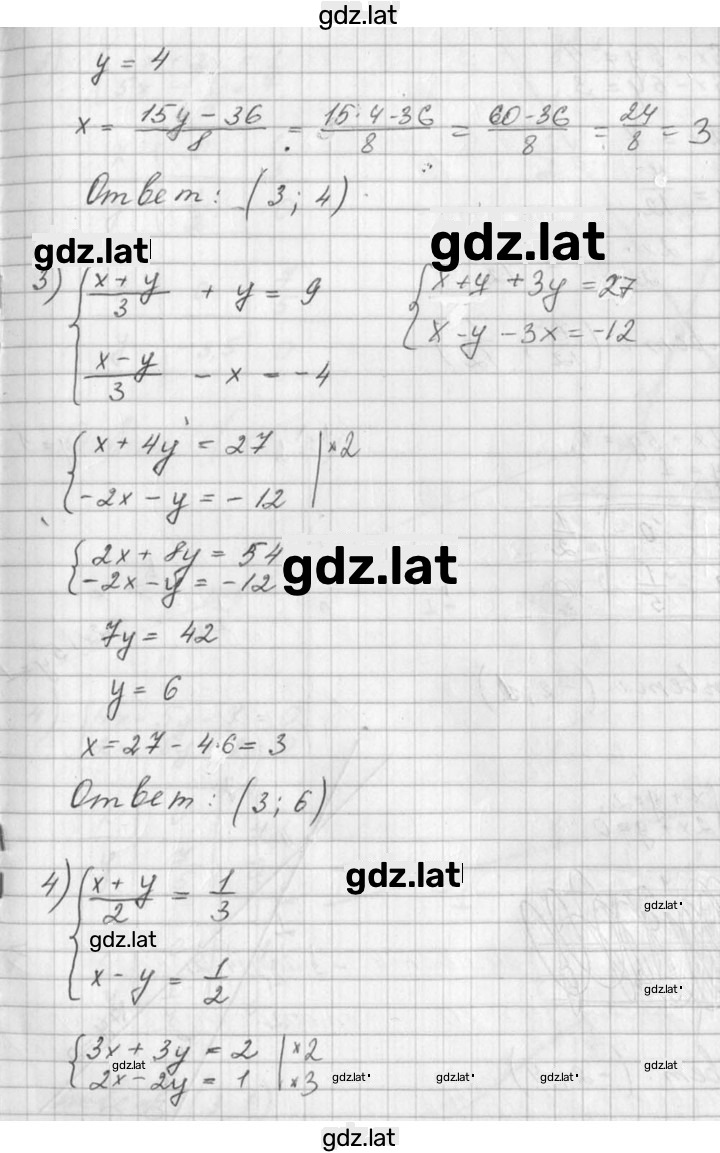 gdz.lat
y = 4
x = (15y - 36)/8 = (15·4 - 36)/8 = (60 - 36)/8 = 24/8 = 3
Ответ: (3; 4)
gdz.lat
gdz.lat
3) { (x + y)/3 + y = 9
(x - y)/3 - x = -4
{ x + y + 3y = 27
x - y - 3x = -12
{ x + 4y = 27 | ×2
-2x - y = -12
{ 2x + 8y = 54
-2x - y = -12
gdz.lat
7y = 42
y = 6
x = 27 - 4·6 = 3
Ответ: (3; 6)
gdz.lat
4) { (x + y)/2 = 1/3
gdz.lat
gdz.lat
x - y = 1/2
gdz.lat
{ 3x + 3y = 2 | ×2
2x - 2y = 1 | ×3
gdz.lat
gdz.lat
gdz.lat
gdz.lat
gdz.lat
gdz.lat